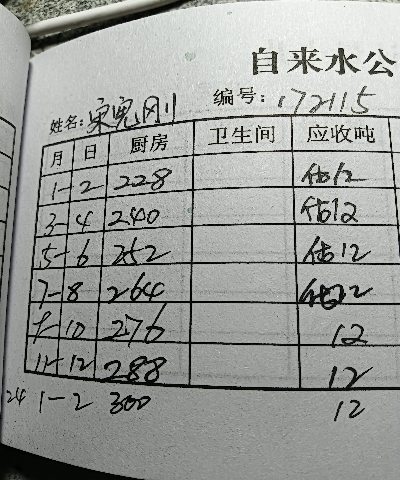 自来水公
姓名: 宋宪刚 编号: 172115
月 日 厨房 卫生间 应收吨
1-2 228 估12
3-4 240 估12
5-6 252 估12
7-8 264 估12
9-10 276 12
11-12 288 12
24 1-2 300 12